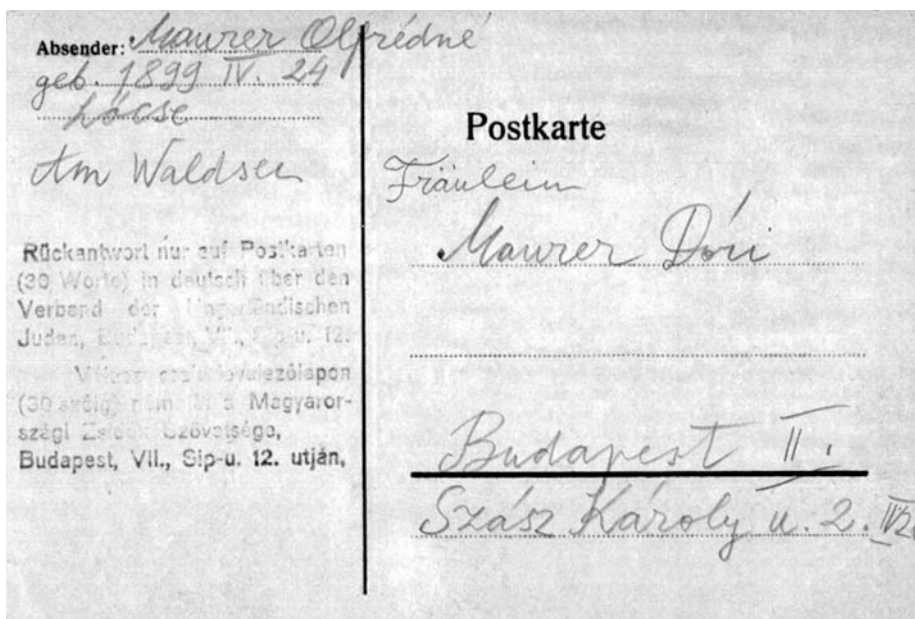 Absender: Maurer Olfrédné
geb. 1899 IV. 24
Lőcse
Am Waldsee
Rückantwort nur auf Postkarten
(30 Worte) in deutsch über den
Verband der Ungarländischen
Juden, Budapest, VII., Sip-u. 12.
(30 szóig) a Magyaror-
szági Zsidók Szövetsége,
Budapest, VII., Sip-u. 12. utján,
Postkarte
Fräulein
Maurer Dóri
Budapest II.
Szász Károly u. 2.